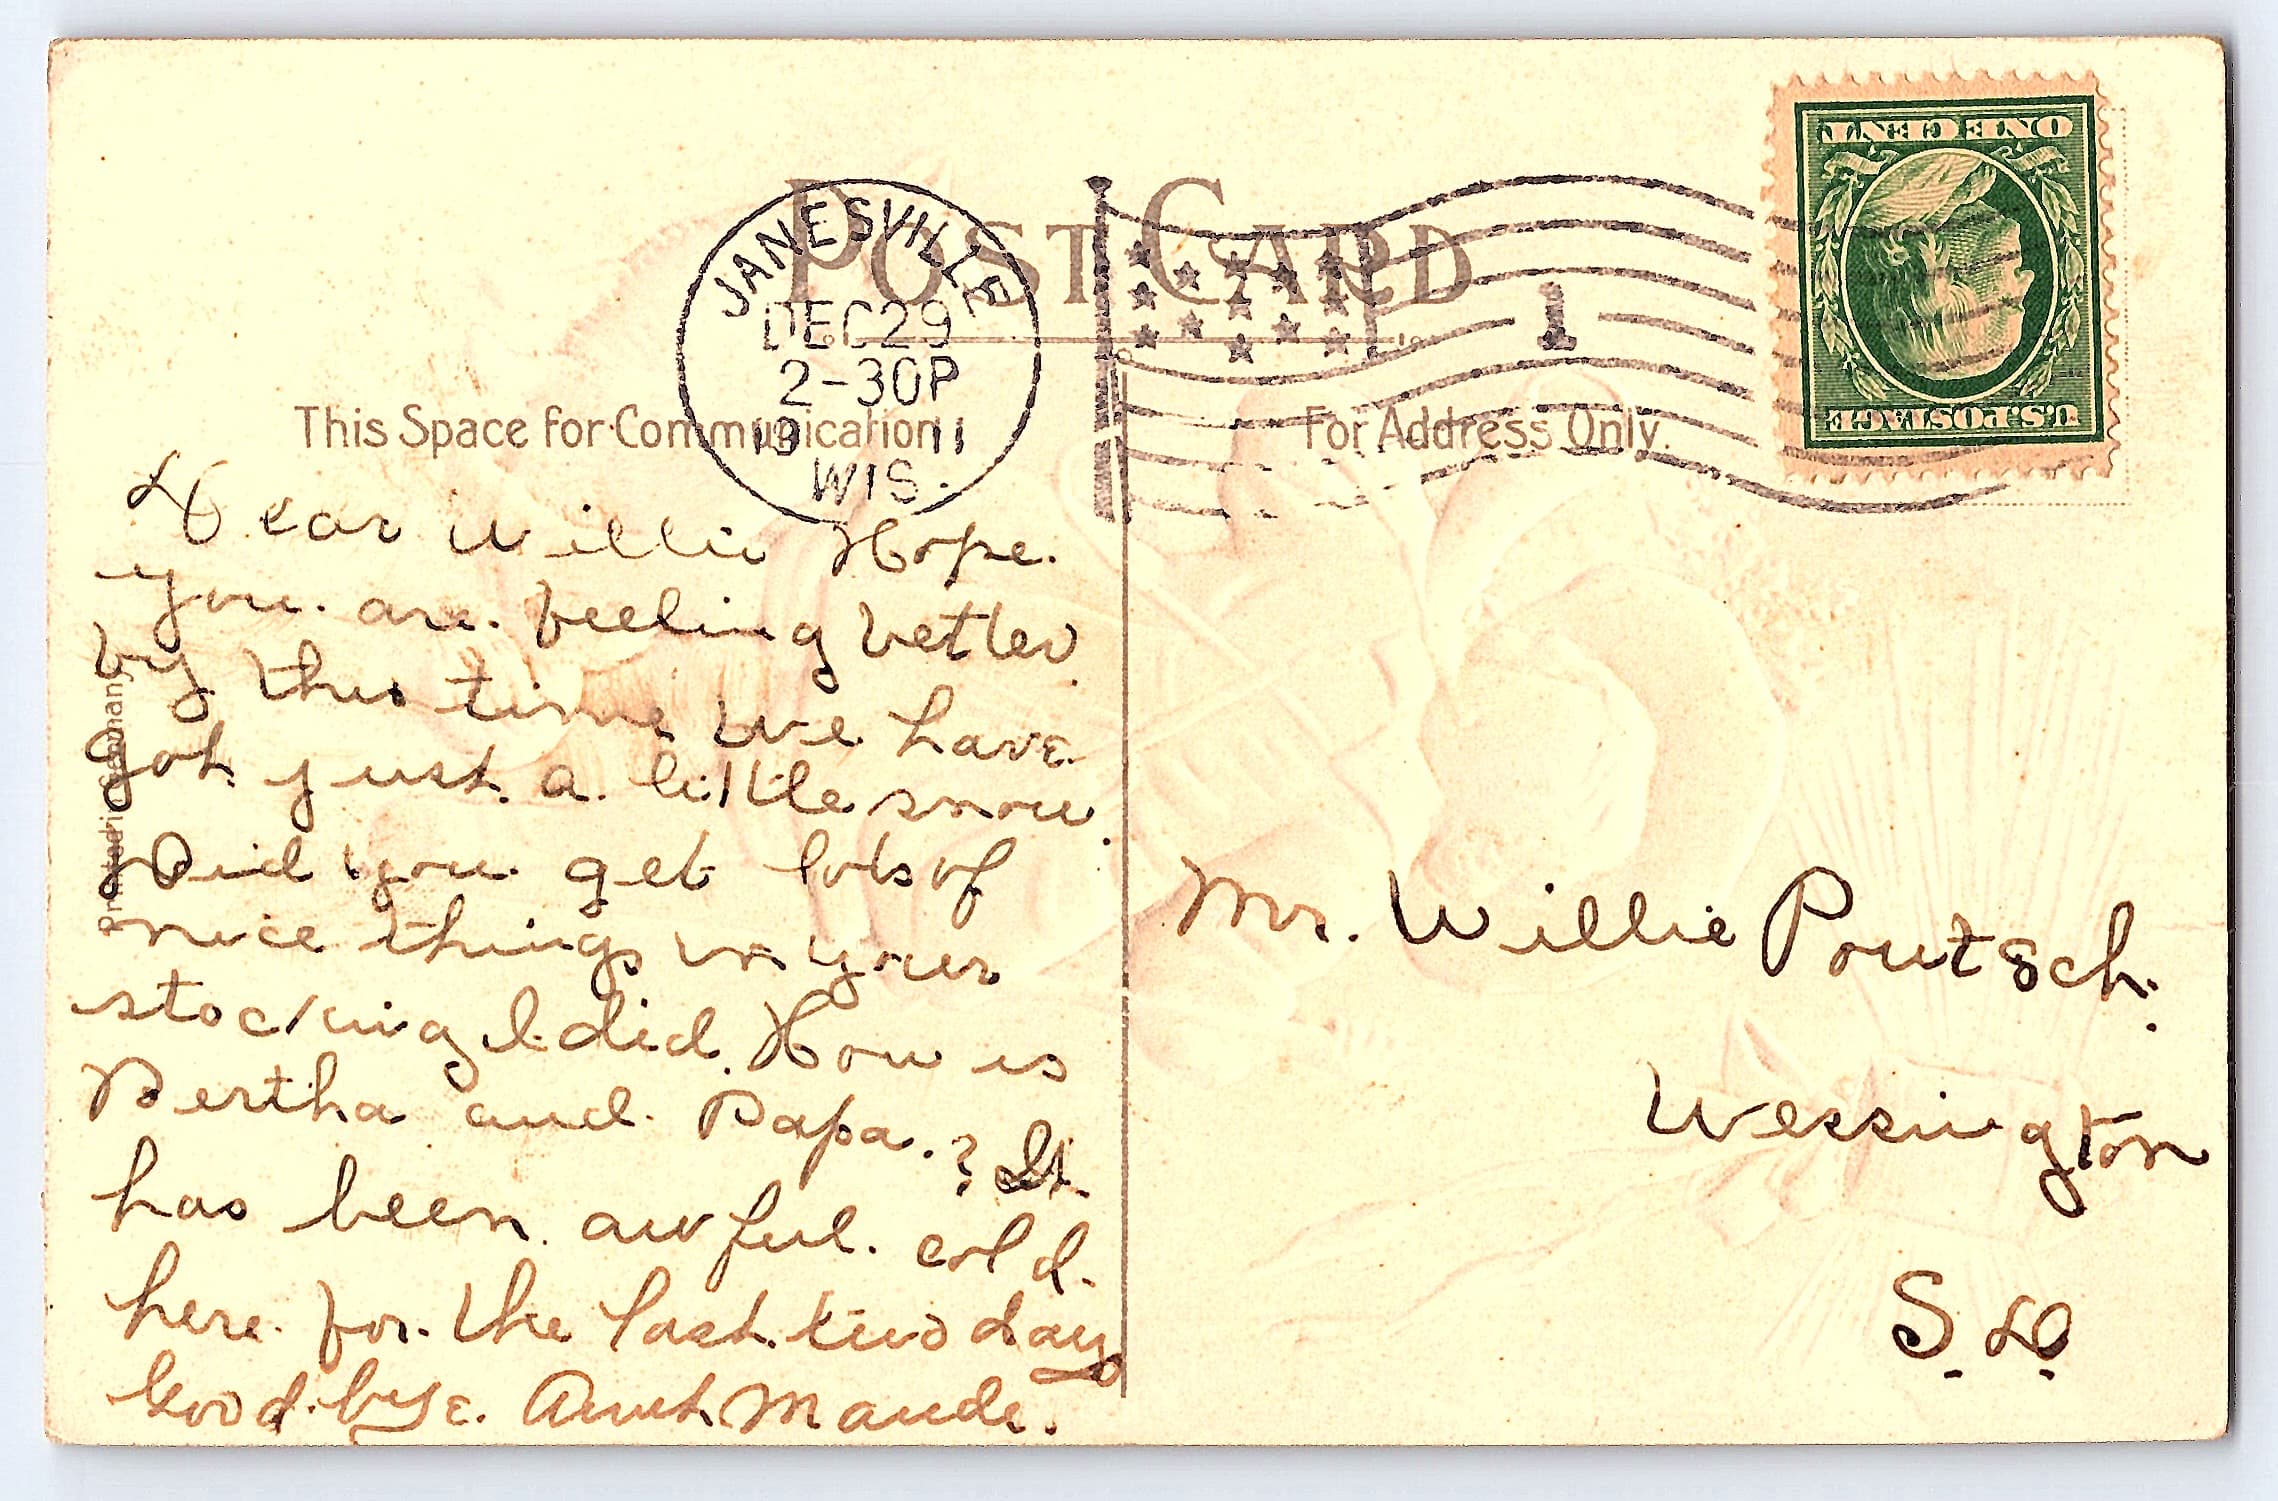 POST CARD
JANESVILLE
DEC 29
2-30P
19 11
WIS.
1
ONE CENT
U.S. POSTAGE
This Space for Communication
For Address Only.
Dear Willie Hope.
you. are. feeling better
by this time we have
got just a little snow.
Did you get lots of
nice things in your
stocking I did. How is
Bertha and Papa.? It
has been awful. cold.
here for the last two days
Good. bye. Aunt Maude.
Printed in Germany
Mr. Willie Poutsch.
Wessington
S. D.